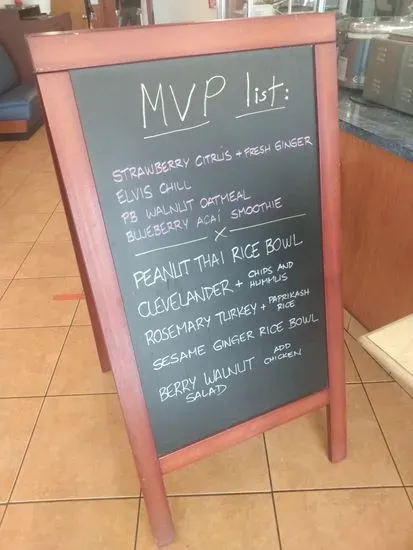 MVP list:
STRAWBERRY CITRUS + FRESH GINGER
ELVIS CHILL
PB WALNUT OATMEAL
BLUEBERRY ACAÍ SMOOTHIE
PEANUT THAI RICE BOWL
CLEVELANDER + CHIPS AND HUMMUS
ROSEMARY TURKEY + PAPRIKASH RICE
SESAME GINGER RICE BOWL
BERRY WALNUT SALAD ADD CHICKEN